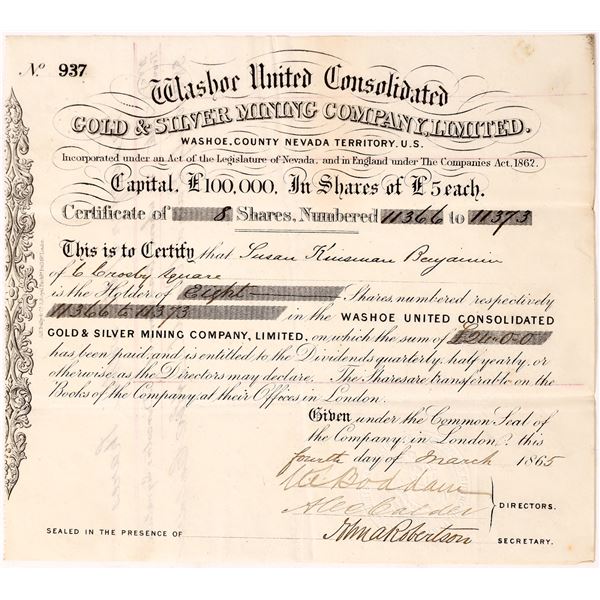 No. 937
Washoe United Consolidated
GOLD & SILVER MINING COMPANY, LIMITED.
WASHOE, COUNTY NEVADA TERRITORY. U.S.
Incorporated under an Act of the Legislature of Nevada. and in England under The Companies Act, 1862.
Capital. £100,000. In Shares of £5 each.
Certificate of 8 Shares, Numbered 11366 to 11373
This is to Certify that Susan Kinsman Benjamin
of 6 Crosby Square
is the Holder of Eight Shares, numbered respectively
11366 to 11373 in the WASHOE UNITED CONSOLIDATED
GOLD & SILVER MINING COMPANY, LIMITED, on which the sum of
has been paid, and is entitled to the Dividends quarterly, half yearly, or
otherwise, as the Directors may declare. The Shares are transferable on the
Books of the Company, at their Offices in London.
Given under the Common Seal of
the Company, in London, this
fourth day of March 1865
DIRECTORS.
John A Robertson
SECRETARY.
SEALED IN THE PRESENCE OF